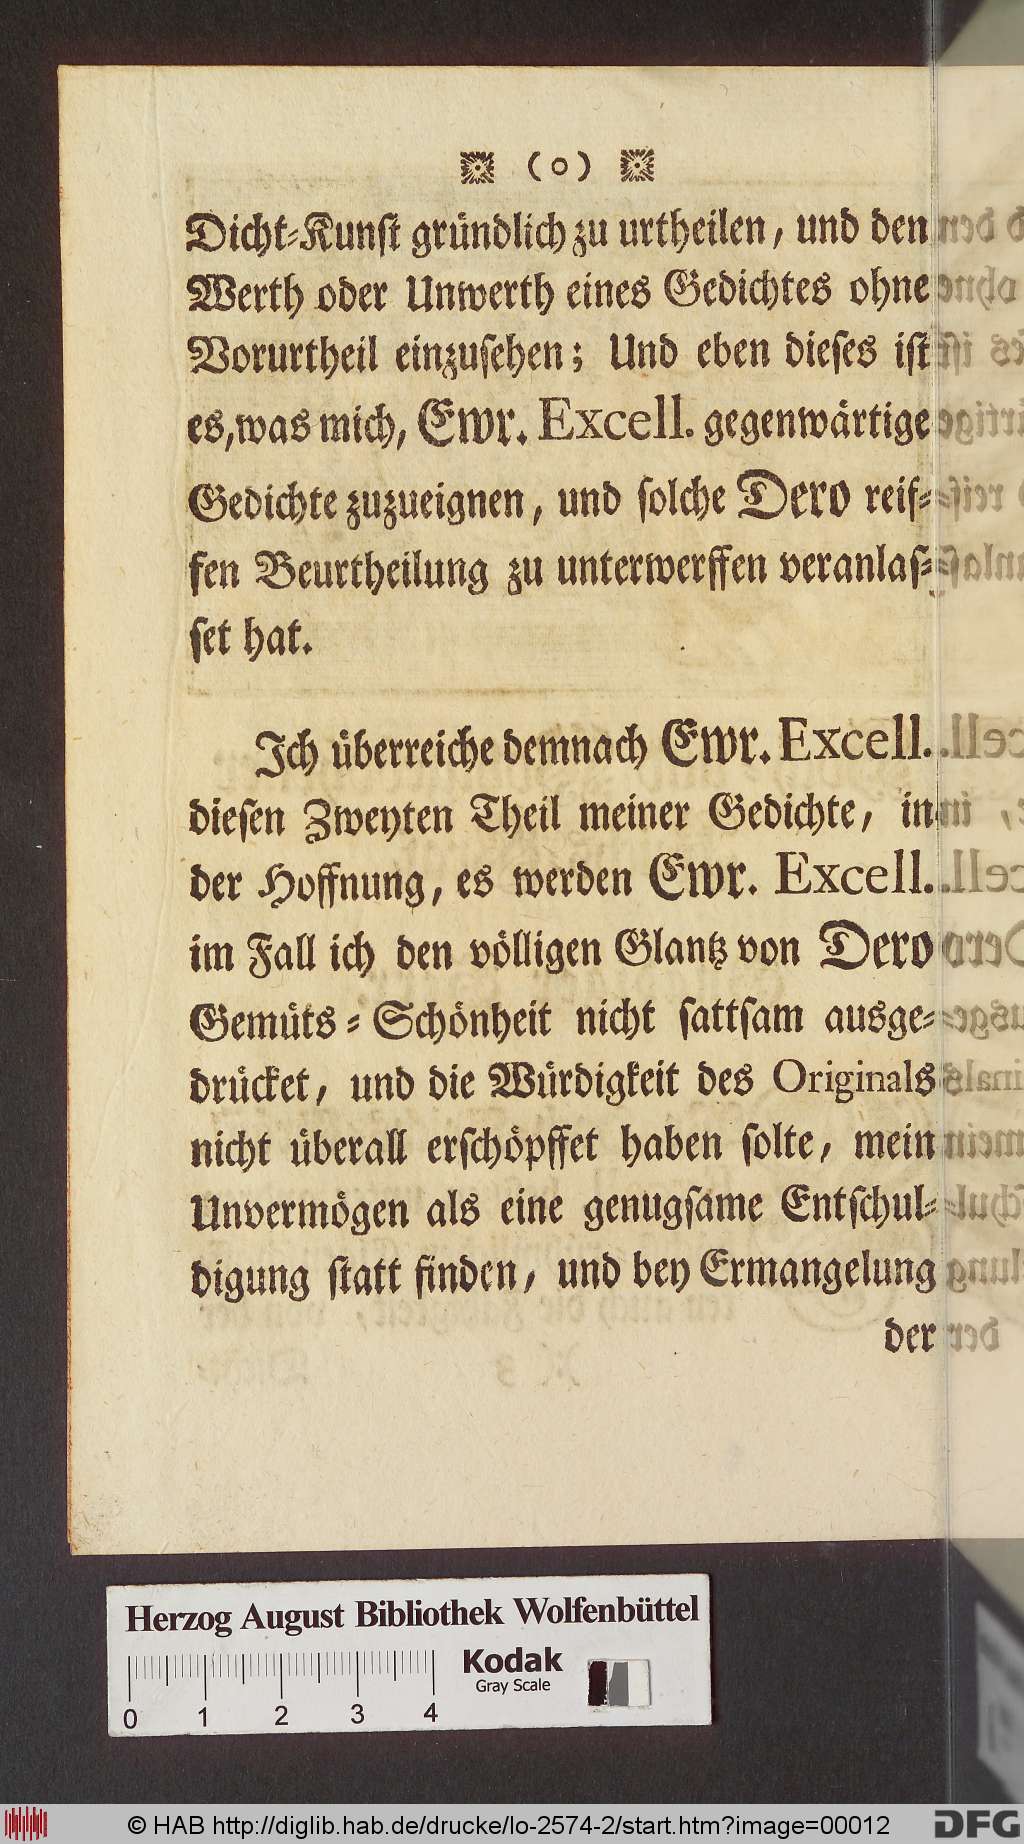 (o)
Dicht-Kunst gründlich zu urtheilen, und den
Werth oder Unwerth eines Gedichtes ohne
Vorurtheil einzusehen; Und eben dieses ist
es, was mich, Ewr. Excell. gegenwärtige
Gedichte zuzueignen, und solche Dero reif-
fen Beurtheilung zu unterwerffen veranlas-
set hat.
Ich überreiche demnach Ewr. Excell.
diesen Zweyten Theil meiner Gedichte, in
der Hoffnung, es werden Ewr. Excell.
im Fall ich den völligen Glantz von Dero
Gemüts-Schönheit nicht sattsam ausge-
drücket, und die Würdigkeit des Originals
nicht überall erschöpffet haben solte, mein
Unvermögen als eine genugsame Entschul-
digung statt finden, und bey Ermangelung
der
Herzog August Bibliothek Wolfenbüttel
Kodak
Gray Scale
0 1 2 3 4
© HAB http://diglib.hab.de/drucke/lo-2574-2/start.htm?image=00012
DFG